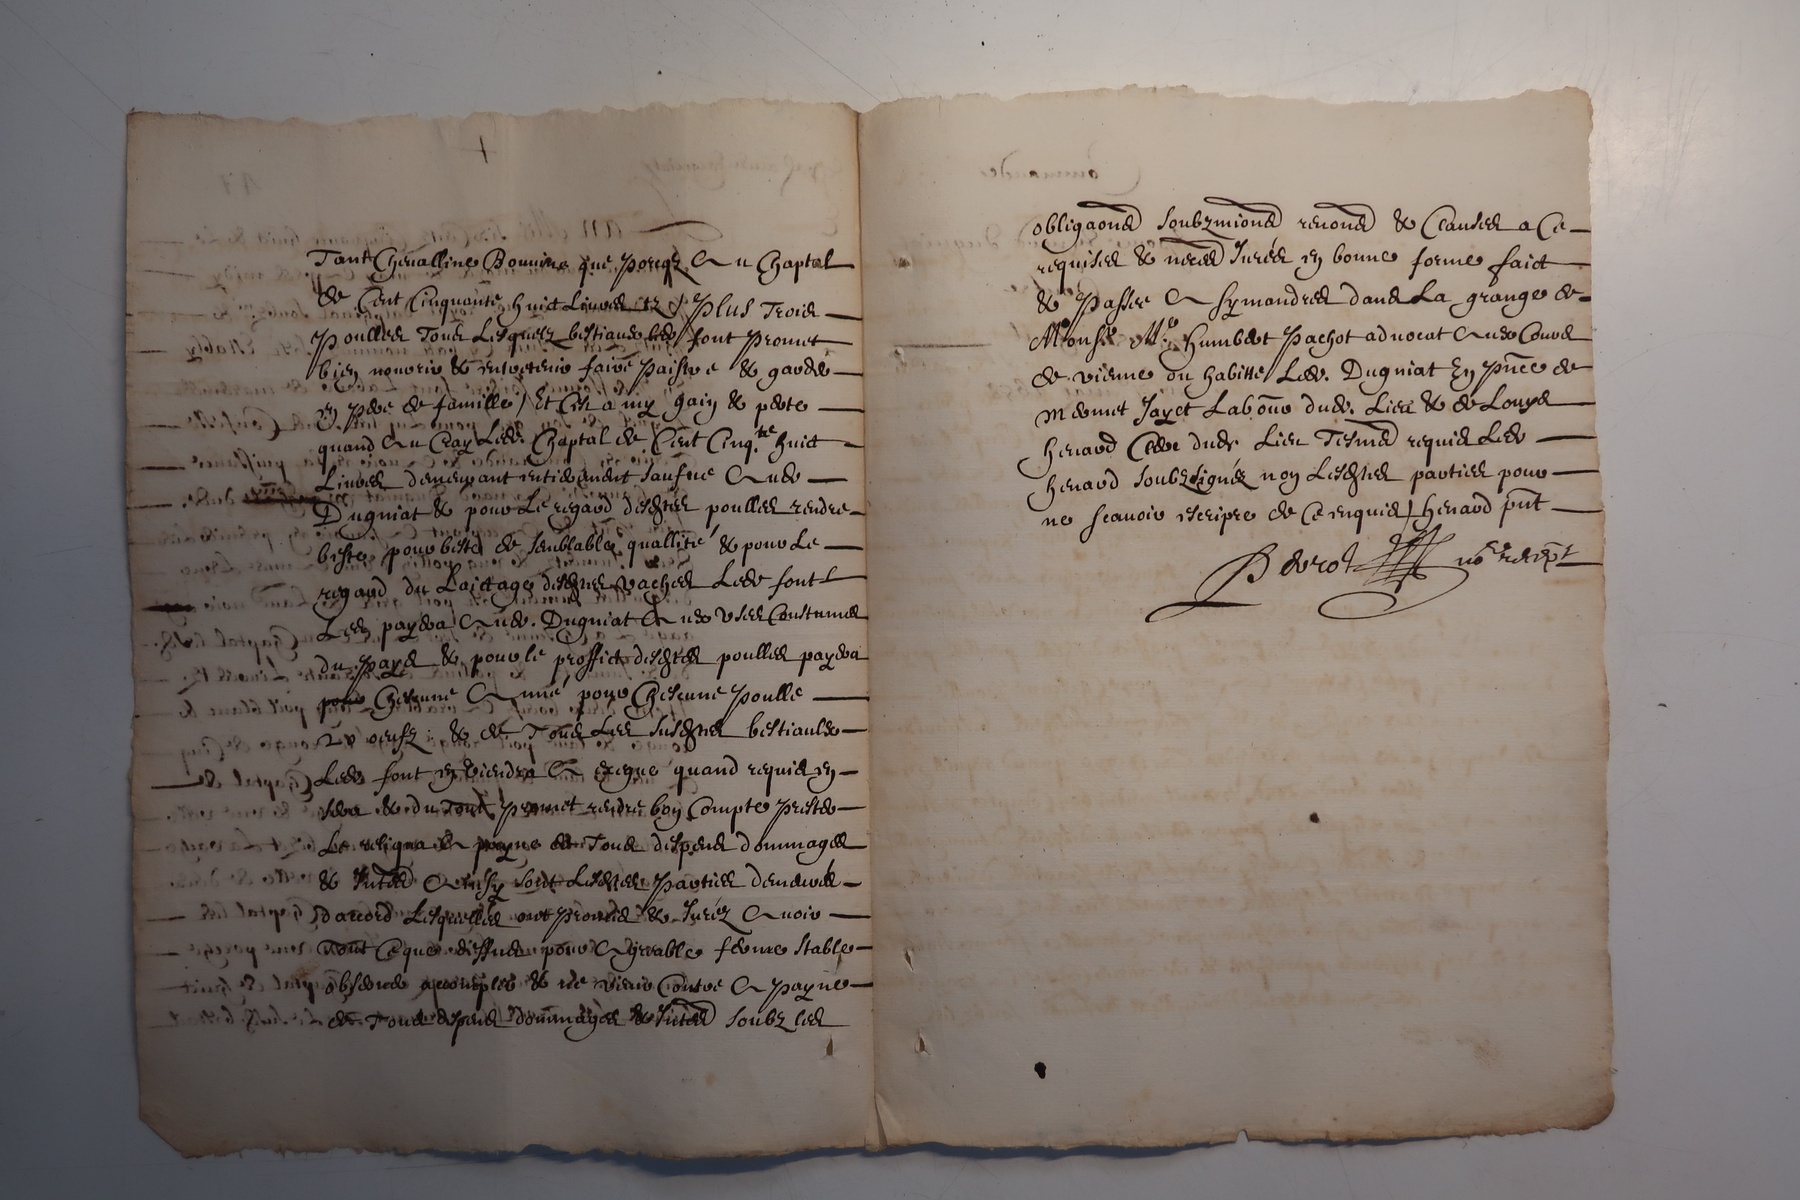 Tant Chevalline Bovine que porcz Au Chaptal
de Cent Cinquante huict Livres tz Plus Trois
Poulles Tous Lesquelz bestiaulx led font Promet
bien nourrir & entretenir faire Paistre & garder
en Pere de famille / Et C'est a my gain & perte
quand Au Cas Led. Chaptal de Cent Cinq.te huict
Livres demeurant entierement saufve Aud
Dugniat & pour Le regard desdites poulles rendre
beste pour beste de semblable quallité & pour Le
regard du Laictage desdites vaches Led font
Les payera Aud. Dugniat Aux us et Coustumes
du Pays & pour le proffict desdites poulles payera
pour Chacune Année pour Chacune Poulle
oeufz & de Tous Les susdites bestiaulx
Led font en viendra A quand requis en
sera & du Tout Promet rendre bon Compte Prester
Le reliqua A payne de Tous despens dommages
& Intere Ainsy sont Lesdites Parties demeures
d'acord Lesquelles ont Promis & Jurez Avoir
Tout Ce que dessus pour Agreable ferme stable
observer acomplir & ne venir Contre A Payne
de Tous despens dommages & Intere soubz les
obligaons soubzmions renons & Clauses a Ce
requises & neces Jurées en bonne forme faict
& Passée A Symandres dans La grange de
Monsr Me Humbert Pachot advocat Aux Cours
de vienne ou habitte Led. Dugniat En pnce de
mermet Jayet Labour dud. Lieu & de Louys
henard Clerc dudt Lieu Tesmes requis Led
henard soubzsigné non Lesdites parties pour
ne scavoir escripre de Ce enquis / henard pnt
no.re recept